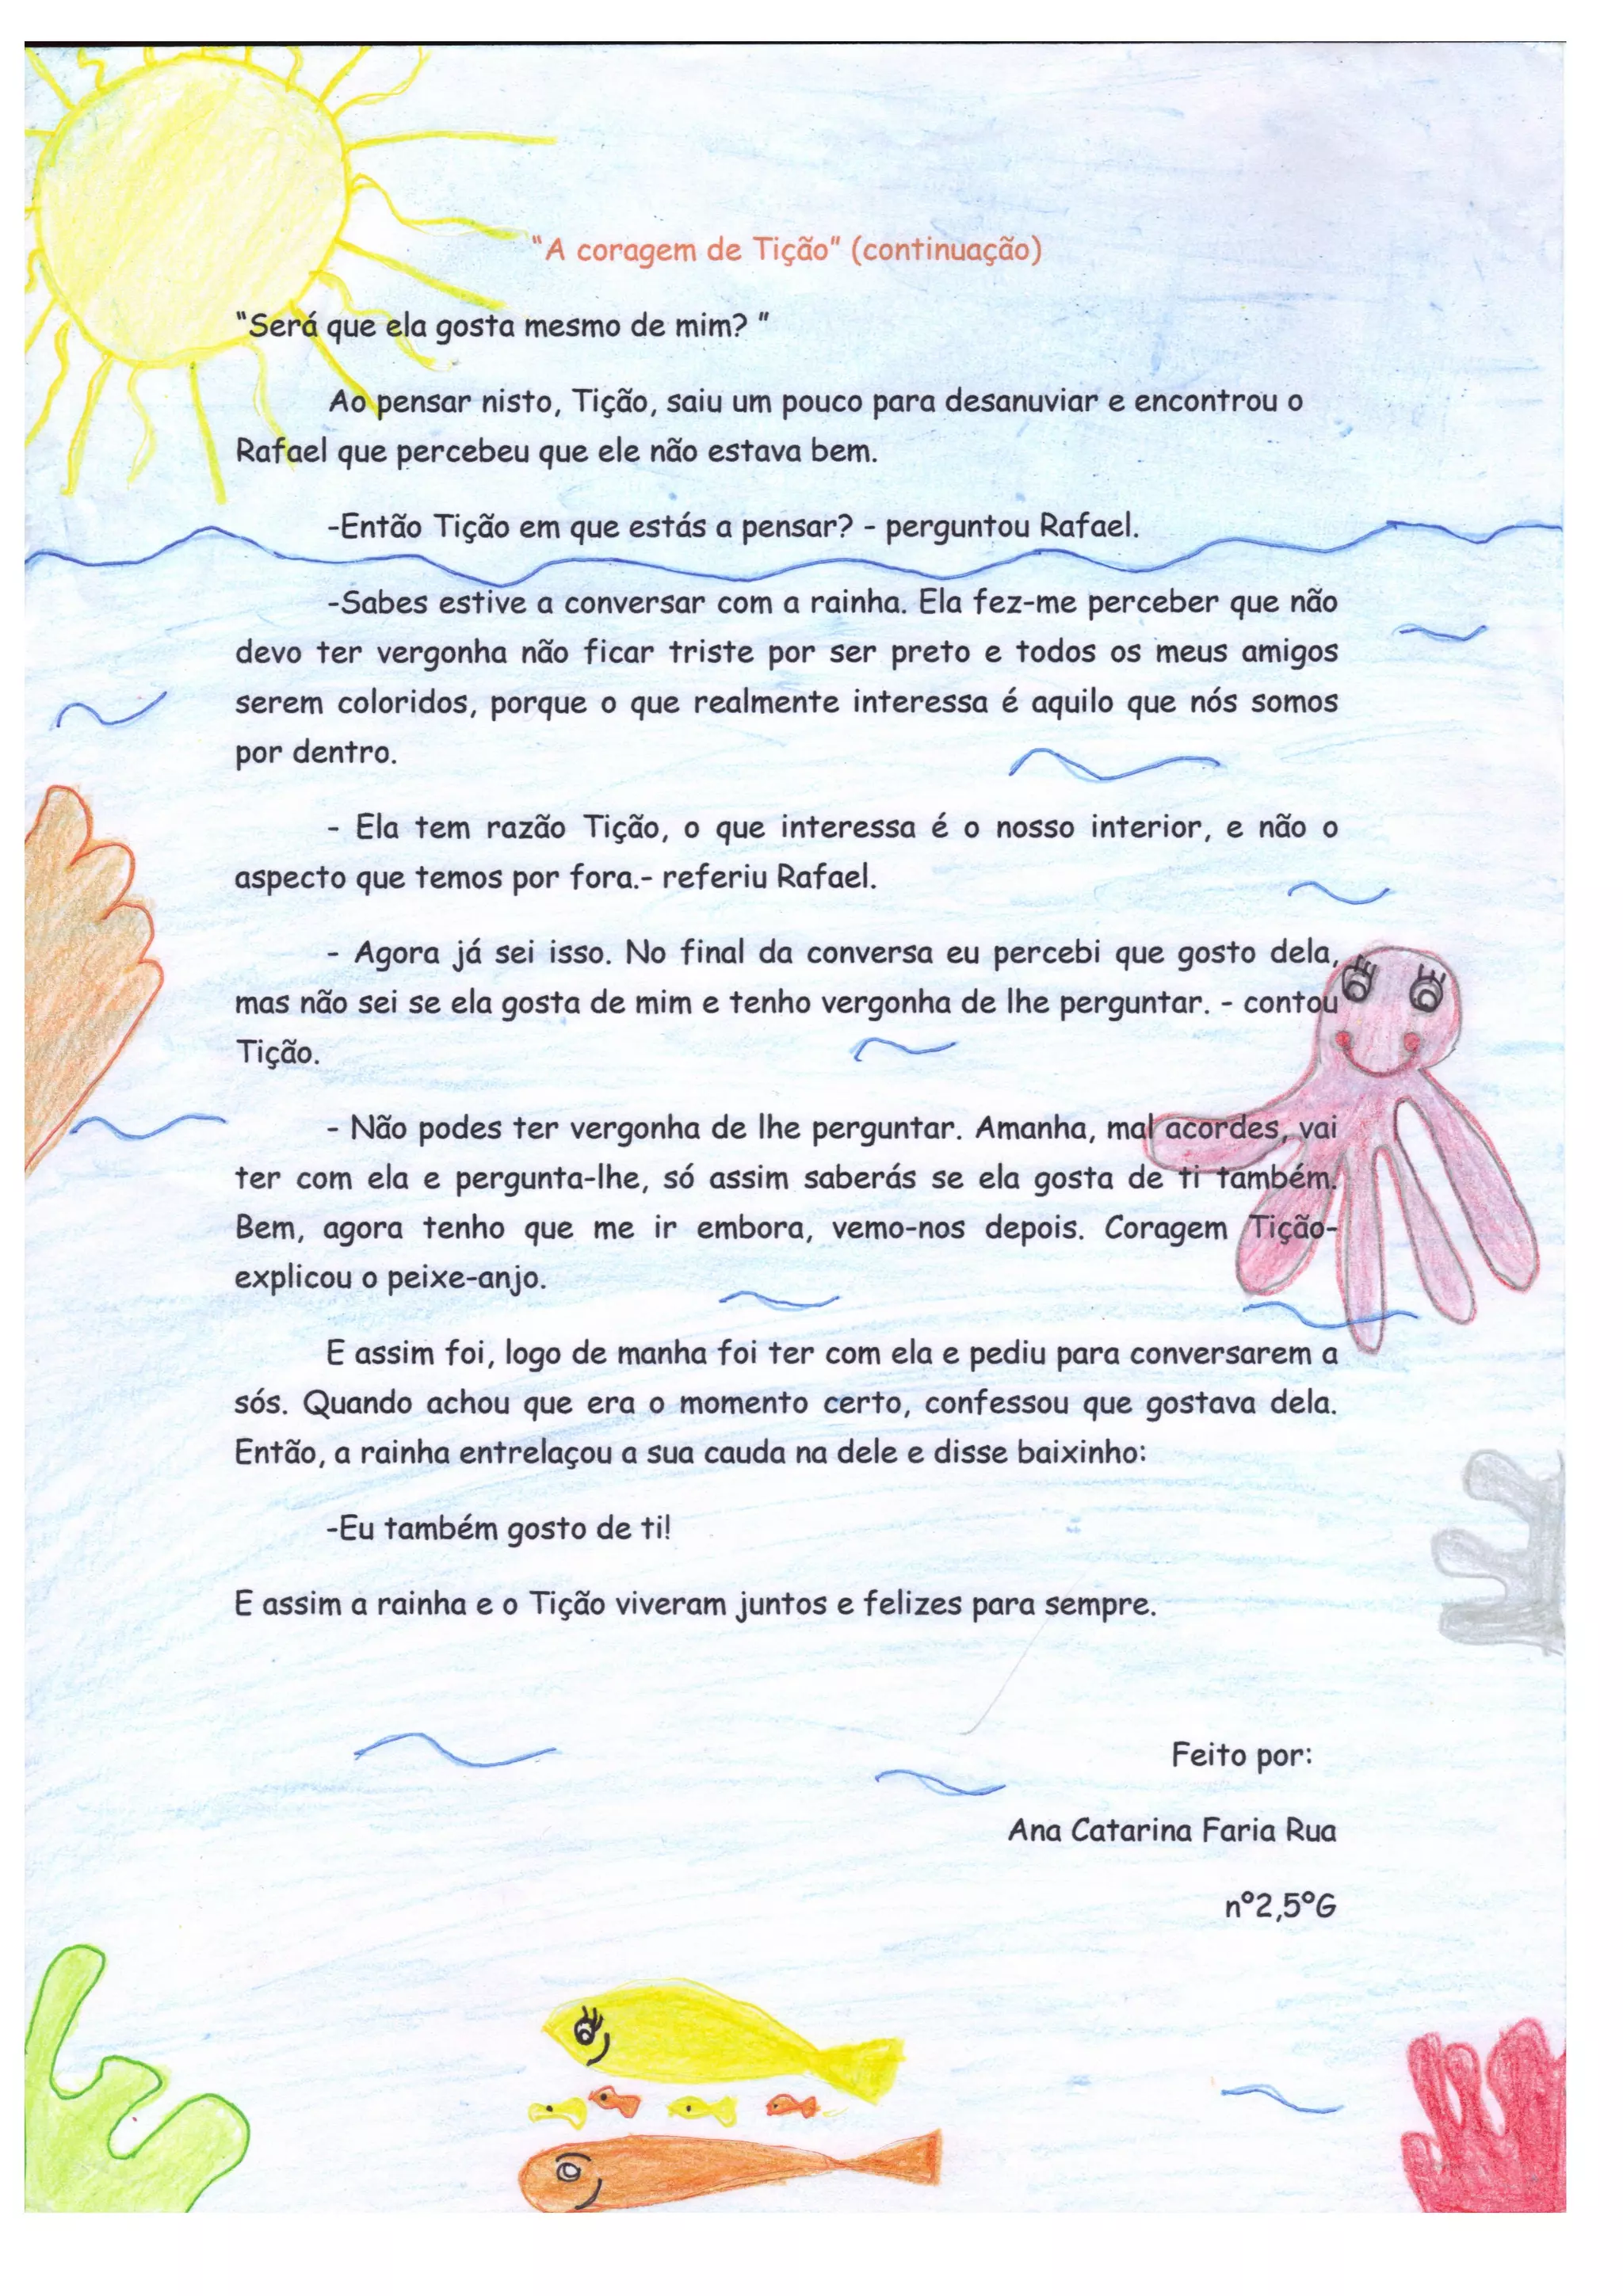 "A coragem de Tição" (continuação)
"Será que ela gosta mesmo de mim? "
Ao pensar nisto, Tição, saiu um pouco para desanuviar e encontrou o
Rafael que percebeu que ele não estava bem.
-Então Tição em que estás a pensar? - perguntou Rafael.
-Sabes estive a conversar com a rainha. Ela fez-me perceber que não
devo ter vergonha não ficar triste por ser preto e todos os meus amigos
serem coloridos, porque o que realmente interessa é aquilo que nós somos
por dentro.
- Ela tem razão Tição, o que interessa é o nosso interior, e não o
aspecto que temos por fora.- referiu Rafael.
- Agora já sei isso. No final da conversa eu percebi que gosto dela,
mas não sei se ela gosta de mim e tenho vergonha de lhe perguntar. - contou
Tição.
- Não podes ter vergonha de lhe perguntar. Amanha, mal acordes, vai
ter com ela e pergunta-lhe, só assim saberás se ela gosta de ti também.
Bem, agora tenho que me ir embora, vemo-nos depois. Coragem Tição-
explicou o peixe-anjo.
E assim foi, logo de manha foi ter com ela e pediu para conversarem a
sós. Quando achou que era o momento certo, confessou que gostava dela.
Então, a rainha entrelaçou a sua cauda na dele e disse baixinho:
-Eu também gosto de ti!
E assim a rainha e o Tição viveram juntos e felizes para sempre.
Feito por:
Ana Catarina Faria Rua
nº2,5ºG